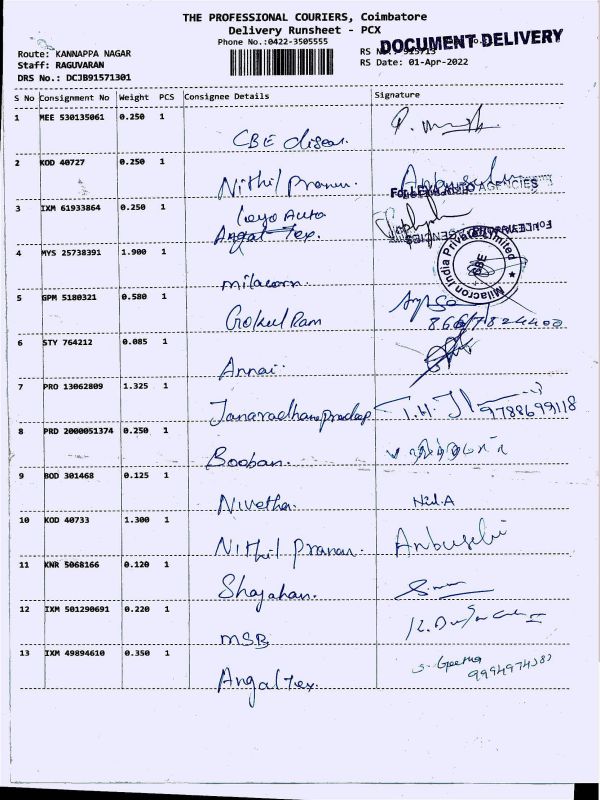 THE PROFESSIONAL COURIERS, Coimbatore
Delivery Runsheet - PCX
Phone No.:0422-3505555
DOCUMENT DELIVERY
Route: KANNAPPA NAGAR
Staff: RAGUVARAN
DRS No.: DCJB91571301
RS Date: 01-Apr-2022
S No Consignment No Weight PCS Consignee Details Signature
1 MEE 530135061 0.250 1
CBE
2 KOD 40727 0.250 1
Nithil Pranav.
For LEYA AUTO AGENCIES
3 IXM 61933864 0.250 1
Leyo Auto
Angal Tex.
4 MYS 25738391 1.900 1
Milacron India Private Limited
CBE
milacorn.
5 GPM 5180321 0.580 1
Gokul Ram
6 STY 764212 0.085 1
Annai.
7 PRO 13062809 1.325 1
Janaradhanepradeep
9788699118
8 PRD 2000051374 0.250 1
Booban.
9 BOD 301468 0.125 1
Nivetha.
10 KOD 40733 1.300 1
Nithil Pranav.
Anbuselvi
11 KNR 5068166 0.120 1
Shajahan.
12 IXM 501290691 0.220 1
MSB
13 IXM 49894610 0.350 1
S. Geetha
Angal Tex.